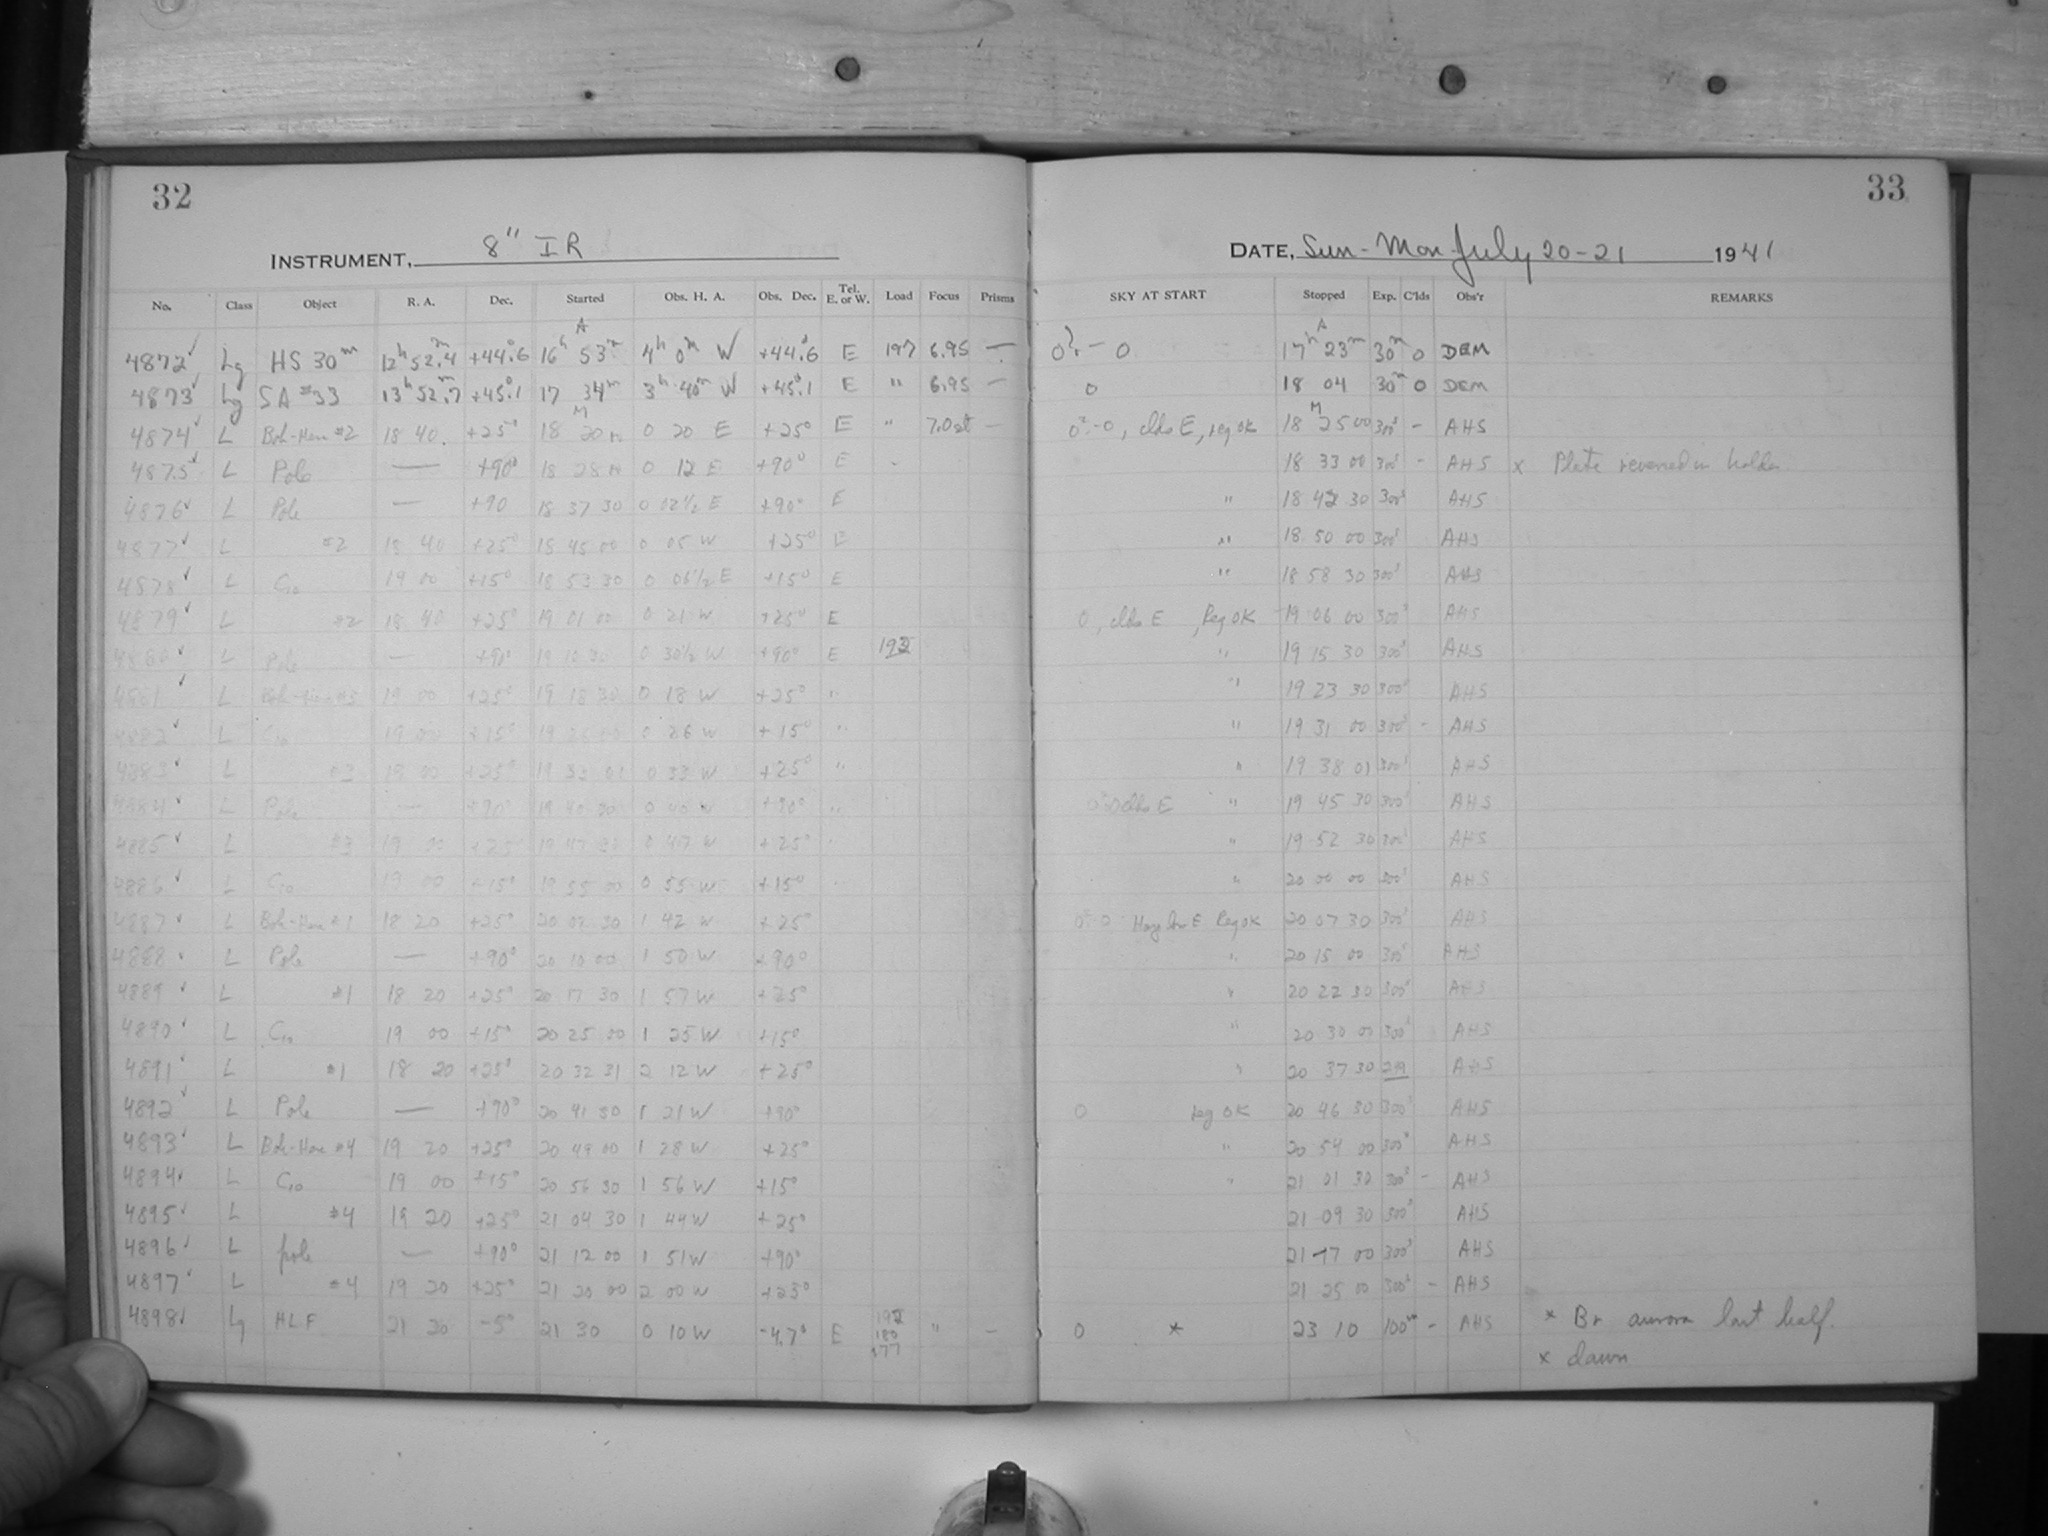 32
INSTRUMENT, 8" IR
No. Class Object R. A. Dec. Started Obs. H. A. Obs. Dec. Tel. E. or W. Load Focus Prisms
4872 Lg HS 30m 12h 52.m4 +44.°6 16h 53m 4h 0m W +44.°6 E 197 6.95 —
4873 Lg SA #33 13h 52.m7 +45.°1 17 34m 3h 40m W +45.°1 E " 6.95 —
4874 L #2 18 40 +25° 18 20 0 20 E +25° E " —
4875 L Pole — +90° 18 28 0 12 E +90° E
4876 L Pole — +90 18 37 30 0 02½ E +90° E
4877 L #2 18 40 +25° 18 45 00 0 05 W +25° E
4878 L C10 19 00 +15° 18 53 30 0 06½ E +15° E
4879 L #2 18 40 +25° 19 01 00 0 21 W +25° E
4880 L Pole — +90° 19 10 30 0 30½ W +90° E 193
4881 L 19 00 +25° 19 18 30 0 18 W +25° "
4882 L C10 19 00 +15° 0 26 W +15° "
4883 L #3 19 00 +25° 19 33 01 0 33 W +25° "
4884 L Pole — +90° 19 40 30 W +90° "
4885 L #3 19 00 +25 19 47 30 0 47 W +25°
4886 L C10 19 00 +15° 19 55 00 0 55 W +15°
4887 L #1 18 20 +25° 20 02 30 1 42 W +25°
4888 L Pole — +90° 20 10 00 1 50 W +90°
4889 L #1 18 20 +25° 20 17 30 1 57 W +25°
4890 L C10 19 00 +15° 20 25 00 1 25 W +15°
4891 L #1 18 20 +25° 20 32 31 2 12 W +25°
4892 L Pole — +90° 20 41 30 1 21 W +90°
4893 L #4 19 20 +25° 20 49 00 1 28 W +25°
4894 L C10 19 00 +15° 20 56 30 1 56 W +15°
4895 L #4 19 20 +25° 21 04 30 1 44 W +25°
4896 L pole — +90° 21 12 00 1 51 W +90°
4897 L #4 19 20 +25° 21 20 00 2 00 W +25°
4898 Lg HLF 21 20 -5° 21 30 0 10 W -4.7° E 192 180 177 " —
33
DATE, Sun-Mon July 20-21 1941
SKY AT START Stopped Exp. C'lds Obs'r REMARKS
0 17h 23m 30m 0 DEM
0 18 04 30m 0 DEM
clds E, reg OK 18 25 00 300s - AHS
18 33 00 300s - AHS x Plate reversed in holder
" 18 42 30 300s AHS
" 18 50 00 300s AHS
" 18 58 30 300s AHS
0, clds E, Reg OK 19 06 00 300s AHS
" 19 15 30 300s AHS
" 19 23 30 300s AHS
" 19 31 00 300s - AHS
" 19 38 01 300s AHS
clds E " 19 45 30 300s AHS
" 19 52 30 300s AHS
" 20 00 00 300s AHS
Reg OK 20 07 30 300s AHS
" 20 15 00 300s AHS
" 20 22 30 300s AHS
" 20 30 00 300s AHS
" 20 37 30 299 AHS
0 reg OK 20 46 30 300s AHS
" 20 54 00 300s AHS
" 21 01 30 300s - AHS
21 09 30 300s AHS
21 17 00 300s AHS
21 25 00 300s - AHS
0 * 23 10 100m - AHS * Br aurora last half.
x dawn